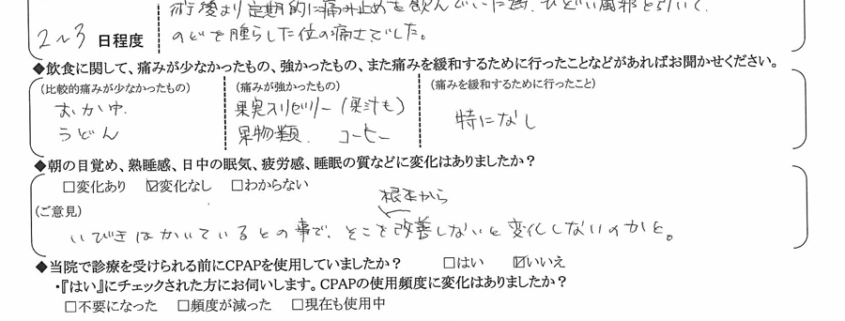 術後より定期的に痛み止めを飲んでいた為、ひどい風邪を引いて、
2~3 日程度 のどを腫らした位の痛さでした。
◆飲食に関して、痛みが少なかったもの、強かったもの、また痛みを緩和するために行ったことなどがあればお聞かせください。
(比較的痛みが少なかったもの) (痛みが強かったもの) (痛みを緩和するために行ったこと)
おかゆ. 果実入りゼリー (果汁も) 特になし
うどん 果物類. コーヒー
◆朝の目覚め、熟睡感、日中の眠気、疲労感、睡眠の質などに変化はありましたか?
□変化あり ☑変化なし □わからない
(ご意見) 根本から
いびきはかいているとの事で、そこを改善しないと変化しないのかと。
◆当院で診療を受けられる前にCPAPを使用していましたか? □はい ☑いいえ
・『はい』にチェックされた方にお伺いします。CPAPの使用頻度に変化はありましたか?
□不要になった □頻度が減った □現在も使用中